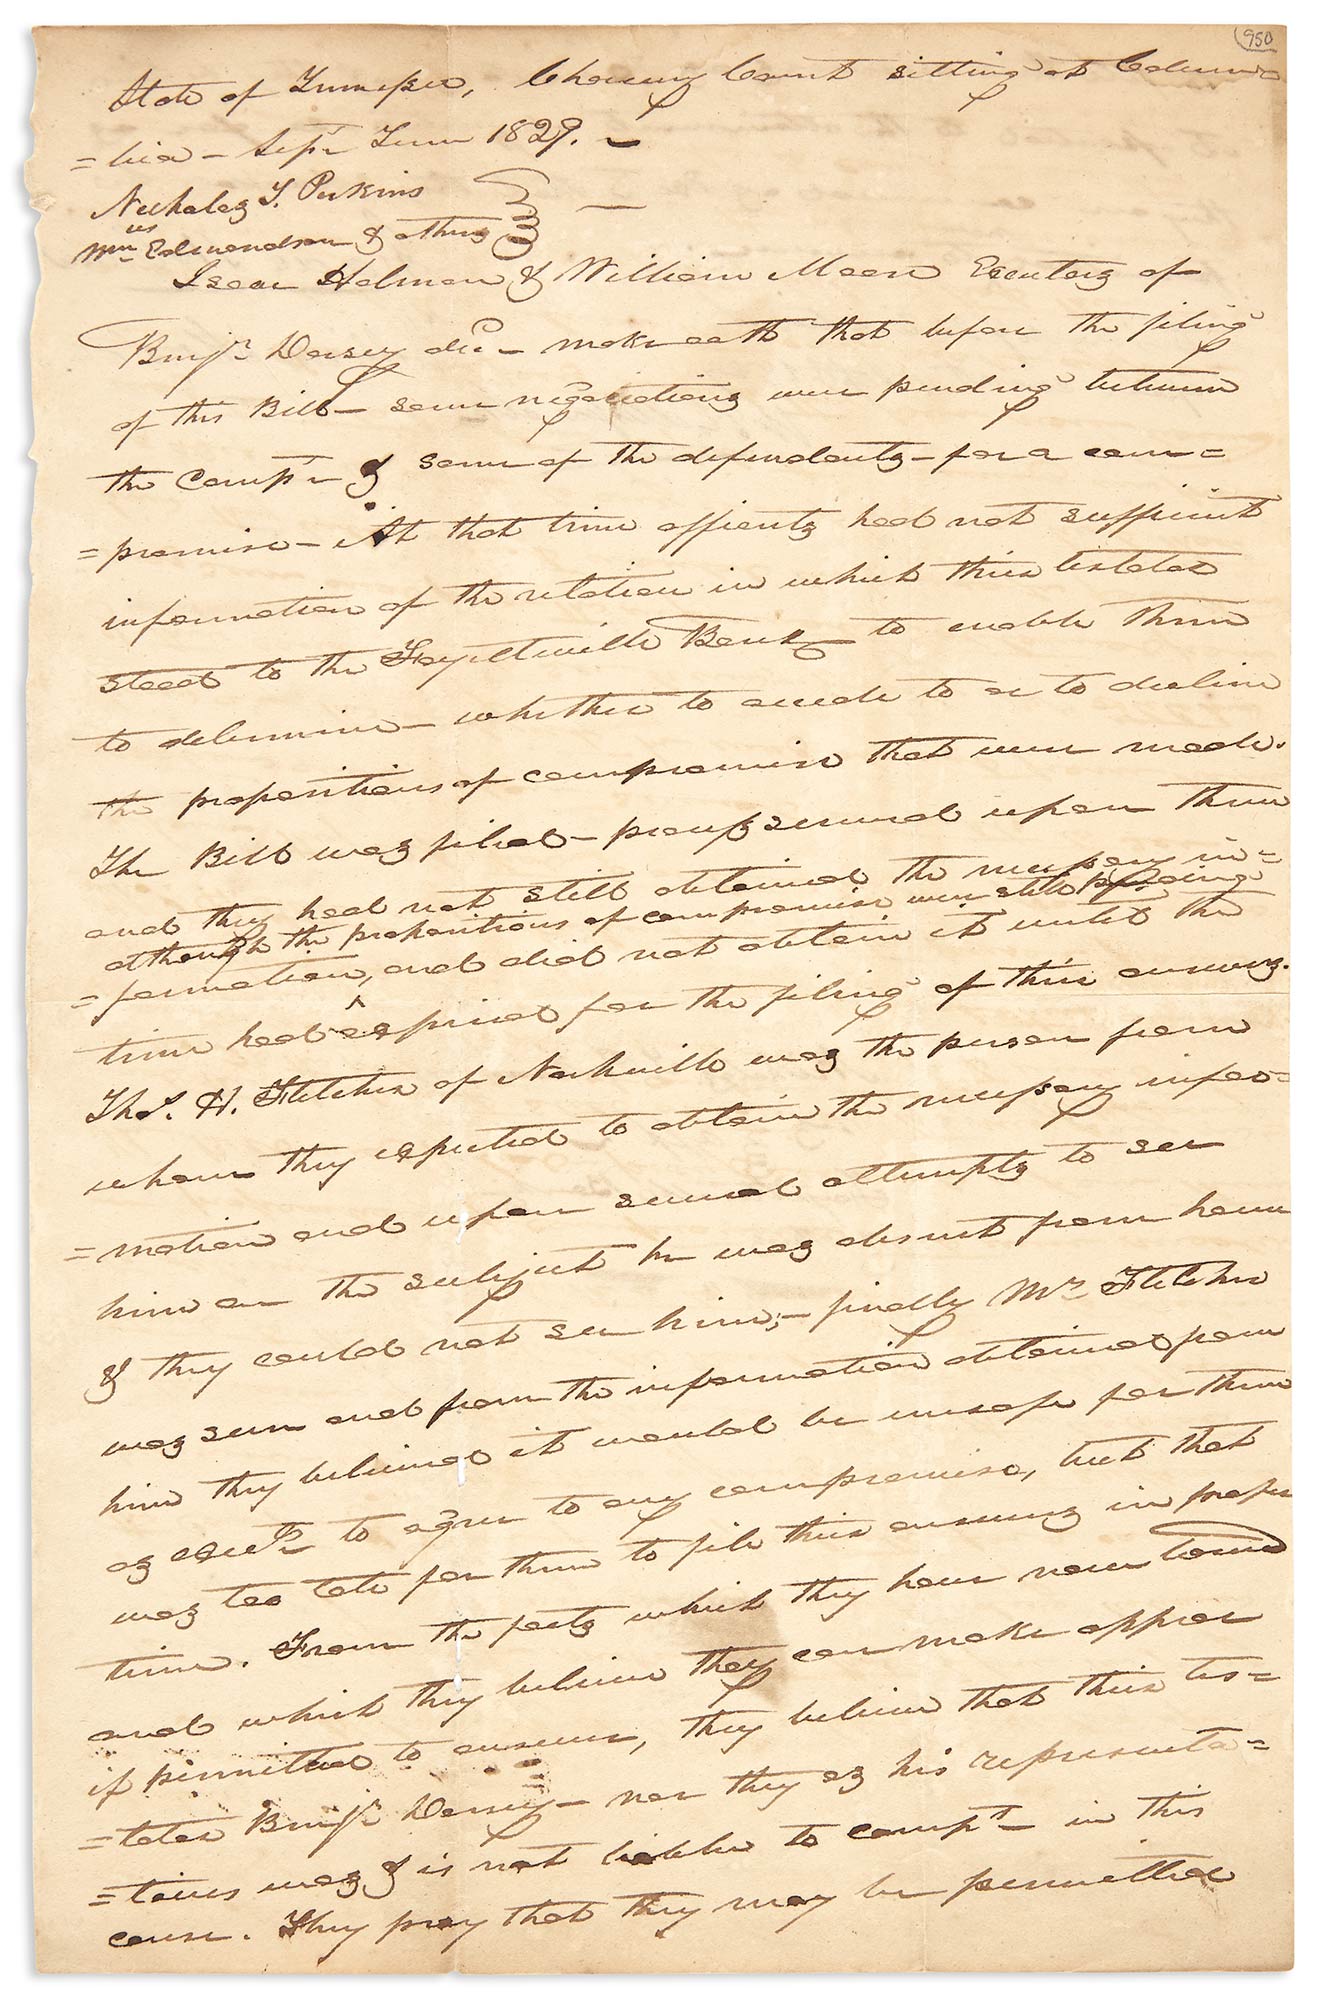 950
State of Tennessee, Chancery Court sitting at Colum
=bia - Sept Term 1829. -
Nicholas T. Perkins
vs
Wm Edmondson & others
Isaac Holman & William Moore Executors of
Benjn Dorsey decd - make oath that before the filing
of this Bill - some negociations were pending between
the Compt - & some of the defendants - for a com=
=promise - At that time affients had not sufficient
information of the relation in which their testator
stood to the Fayetteville Bank to enable them
to determine - whether to accede to or to decline
the propositions of compromise that were made.
The Bill was filed - process served upon them
and they had not still obtained the necessary in=
although the propositions of compromise were still pending
=formation, and did not obtain it until the
time had expired for the filing of their answers.
Thos. H. Fletcher of Nashville was the person from
whom they expected to obtain the necessary infor=
=mation and upon several attempts to see
him on the subject he was absent from home
& they could not see him; - finally Mr Fletcher
was seen and from the information obtained from
him they believed it would be unsafe for them
as exects to agree to any compromise, but that
was too late for them to file their answers in proper
time. From the facts which they have now
and which they believe they can make appear
if permitted to answer, they believe that their tes=
=tator Benjn Dorsey - nor they as his representa=
=tives was & is not liable to compt - in this
cause. They pray that they may be permitted